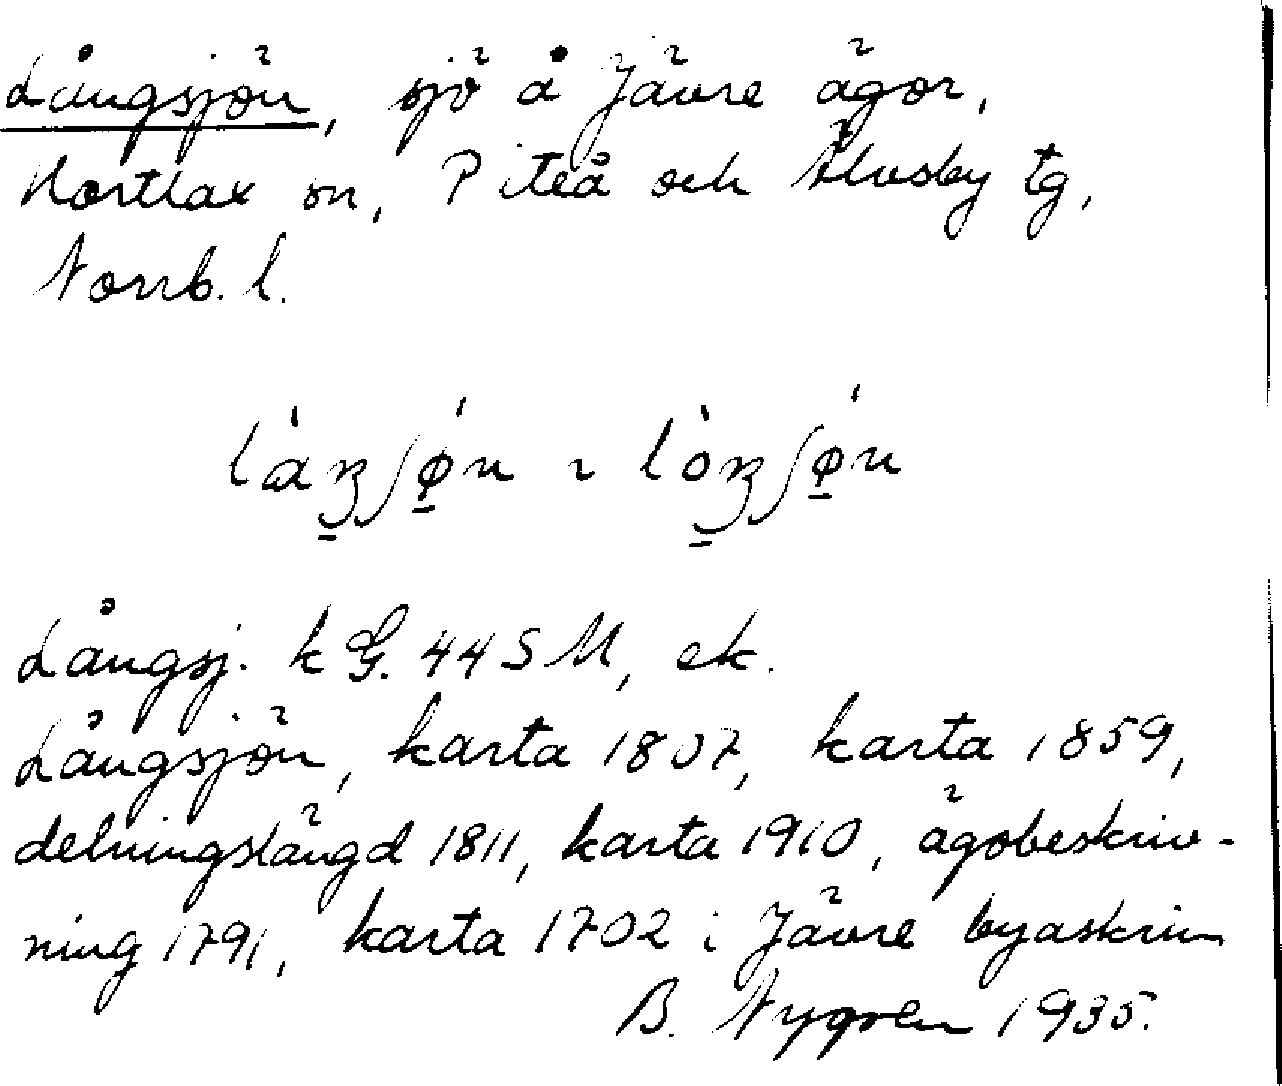 Långsjön, sjö å Jävre ägor,
Hortlax sn, Piteå och Älvsby tg,
Norrb. l.
Långsj. k G. 44 S M, ek.
Långsjön, karta 1807, karta 1859,
delningslängd 1811, karta 1910, ägobeskriv-
ning 1791, karta 1702 i Jävre byaskrin
B. Nygren 1935.